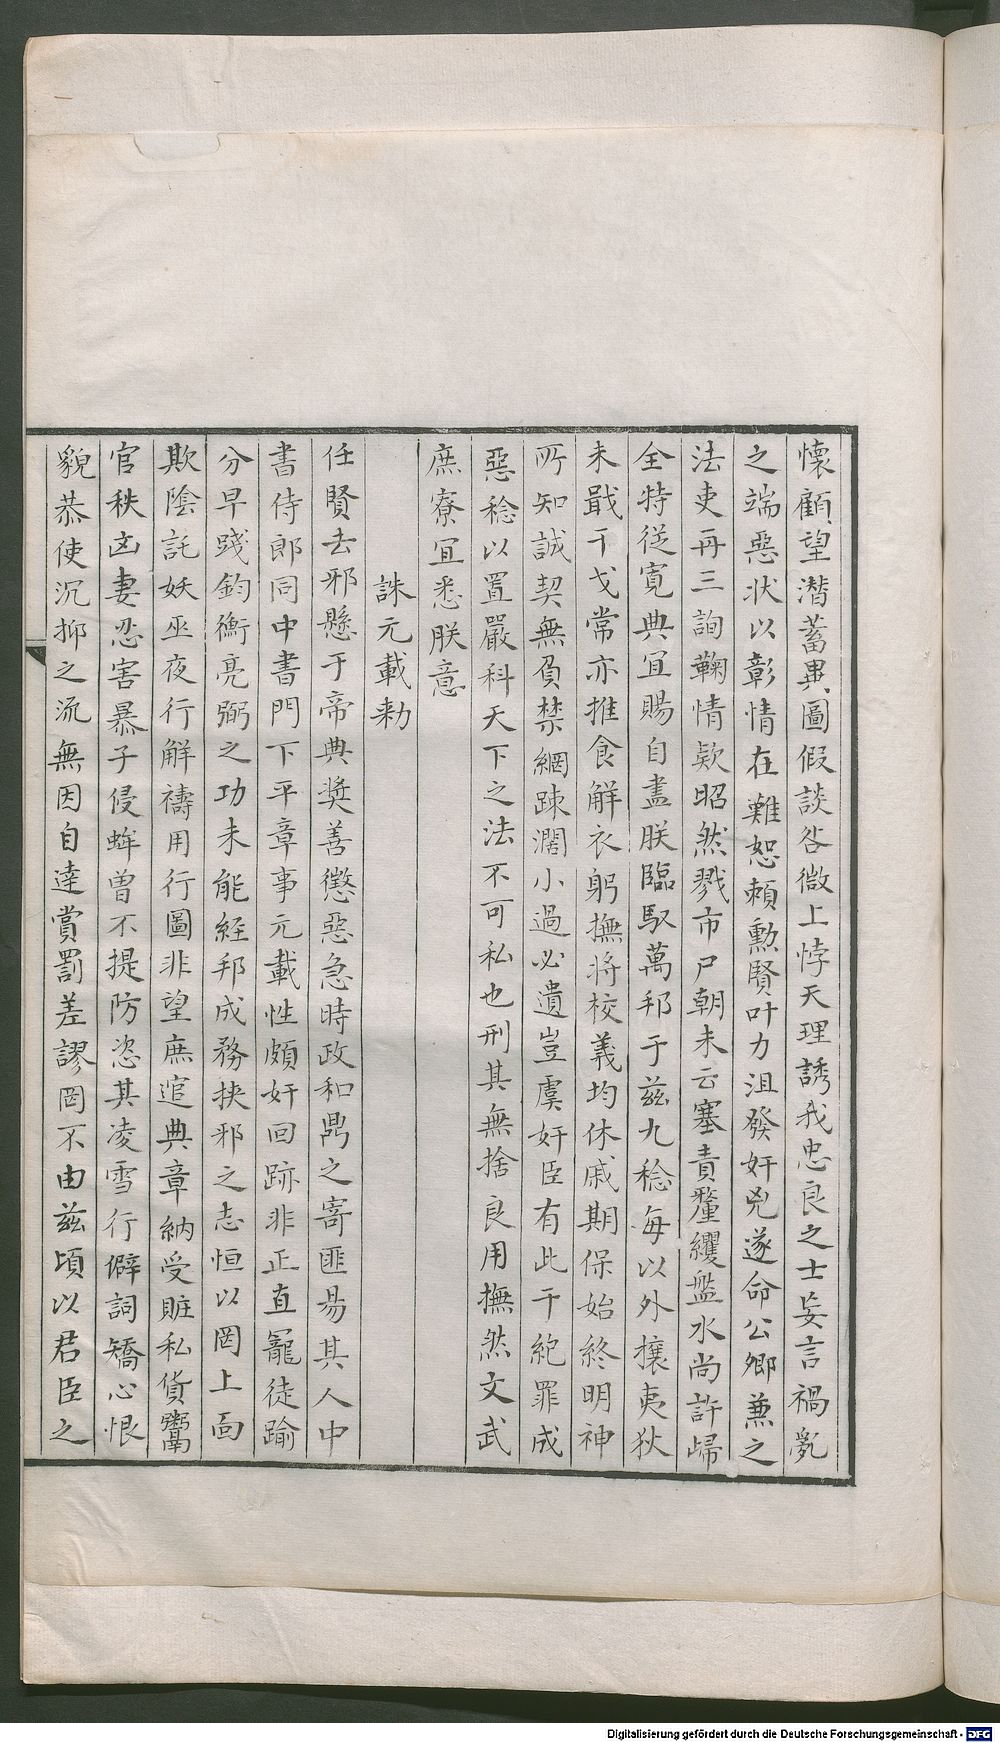 懷顧望潛蓄異圖假談咎徵上悖天理誘我忠良之士妄言禍亂
之端惡状以彰情在難恕頼勲賢叶力沮發奸兇遂命公卿兼之
法吏再三詢鞠情欵昭然戮市尸朝未云塞責氂纓盤水尚許歸
全特從寛典宜賜自盡朕臨馭萬邦于兹九稔每以外攘夷狄
未戢干戈常亦推食解衣躬撫將校義均休戚期保始終明神
所知誠契無負禁網踈濶小過必遺豈虞奸臣有此干紀罪成
惡稔以置嚴科天下之法不可私也刑其無捨良用撫然文武
庶寮宜悉朕意
誅元載勑
任賢去邪懸于帝典奬善懲惡急時政和鼎之寄匪易其人中
書侍郎同中書門下平章事元載性頗奸回跡非正直寵徒踰
分早踐鈞衡亮弼之功未能經邦成務挾邪之志恒以罔上面
欺陰託妖巫夜行解禱用行圖非望庶逭典章納受贓私貨鬻
官秩凶妻忍害暴子侵蛑曽不提防恣其凌雪行僻詞矯心恨
貌恭使沉抑之流無因自達賞罰差謬罔不由兹頃以君臣之
Digitalisierung gefördert durch die Deutsche Forschungsgemeinschaft - DFG